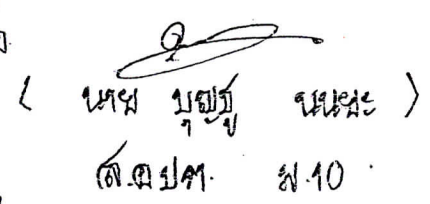 ( นาย บุญชู นนยะ )
ส.อปต. ม.10